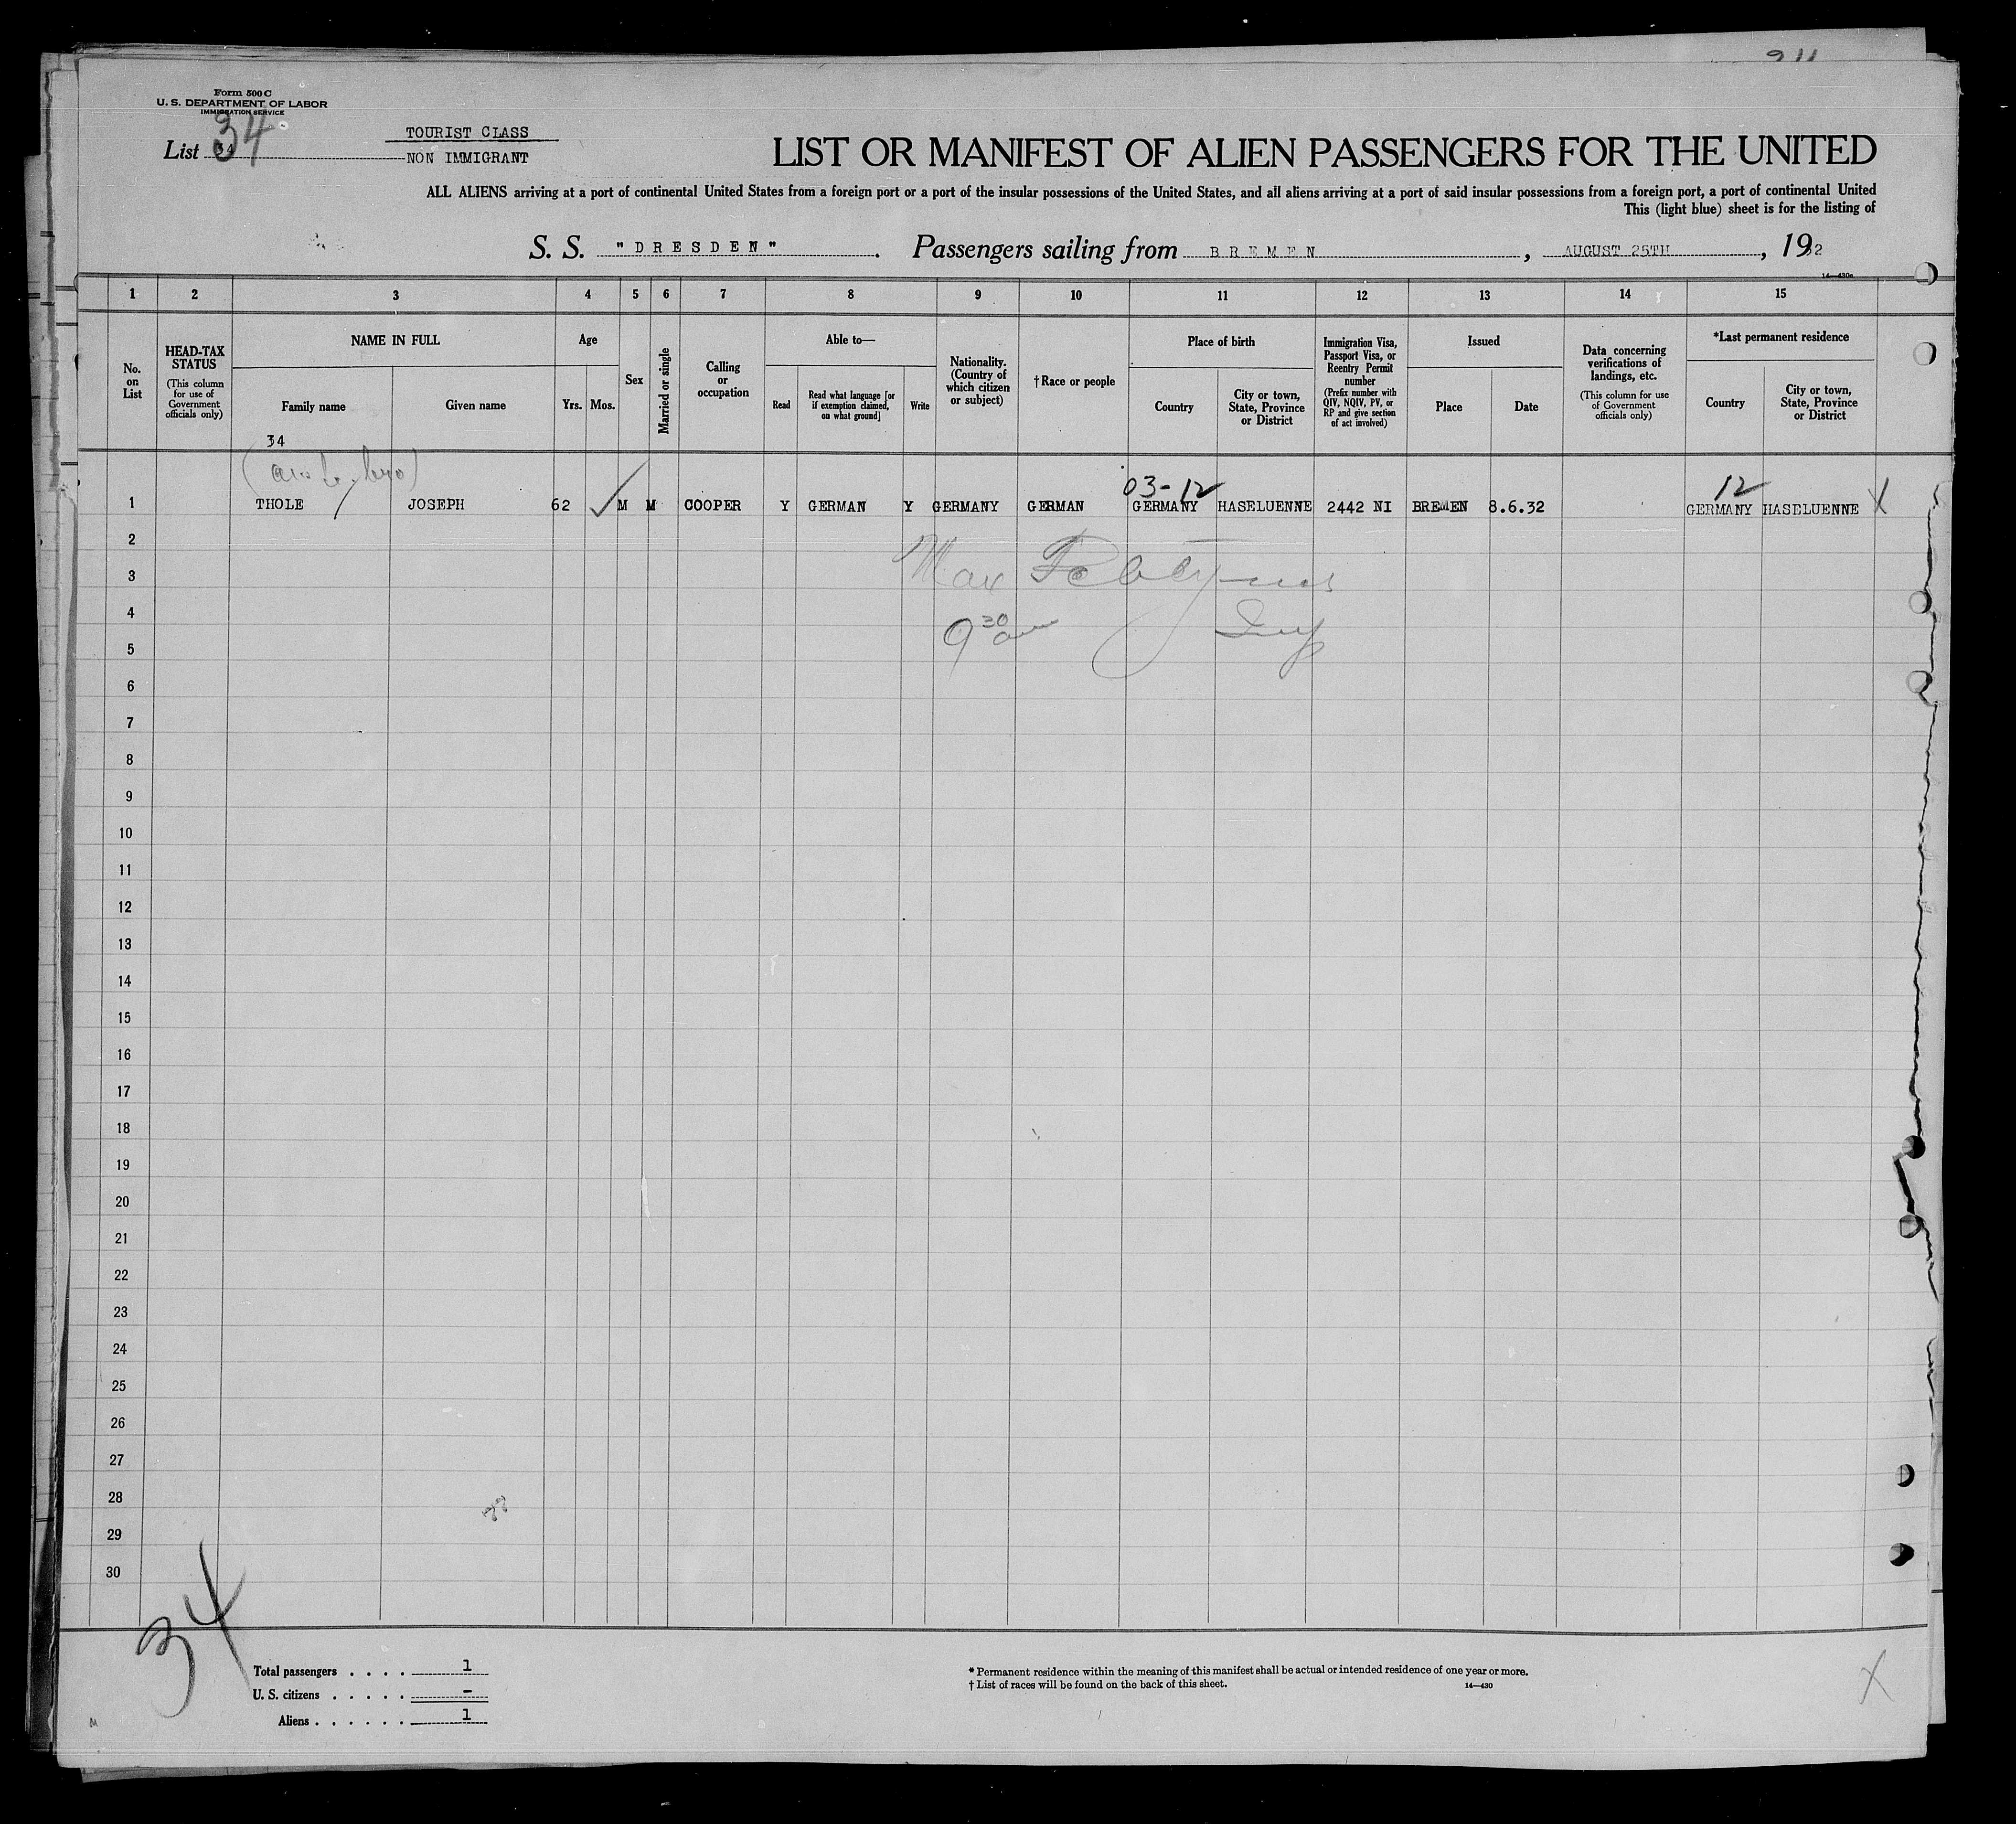 Form 500 C
U. S. DEPARTMENT OF LABOR
IMMIGRATION SERVICE
34
List 34
TOURIST CLASS
NON IMMIGRANT
LIST OR MANIFEST OF ALIEN PASSENGERS FOR THE UNITED
ALL ALIENS arriving at a port of continental United States from a foreign port or a port of the insular possessions of the United States, and all aliens arriving at a port of said insular possessions from a foreign port, a port of continental United
This (light blue) sheet is for the listing of
S. S. "DRESDEN". Passengers sailing from BREMEN, AUGUST 25TH, 1932
14—430a
1 2 3 4 5 6 7 8 9 10 11 12 13 14 15
No. on List
HEAD-TAX STATUS
(This column for use of Government officials only)
NAME IN FULL
Family name
Given name
Age
Yrs. Mos.
Sex
Married or single
Calling or occupation
Able to—
Read
Read what language [or if exemption claimed, on what ground]
Write
Nationality. (Country of which citizen or subject)
†Race or people
Place of birth
Country
City or town, State, Province or District
Immigration Visa, Passport Visa, or Reentry Permit number
(Prefix number with QIV, NQIV, PV, or RP and give section of act involved)
Issued
Place
Date
Data concerning verifications of landings, etc.
(This column for use of Government officials only)
*Last permanent residence
Country
City or town, State, Province or District
34
03-12
12
1 THOLE JOSEPH 62 M M COOPER Y GERMAN Y GERMANY GERMAN GERMANY HASELUENNE 2442 NI BREMEN 8.6.32 GERMANY HASELUENNE X
2
3 Max
4
9 30
5
6
7
8
9
10
11
12
13
14
15
16
17
18
19
20
21
22
23
24
25
26
27
28
29
30
34
Total passengers . . . . 1
U. S. citizens . . . . . –
Aliens . . . . . . 1
* Permanent residence within the meaning of this manifest shall be actual or intended residence of one year or more.
† List of races will be found on the back of this sheet.
14—430
X